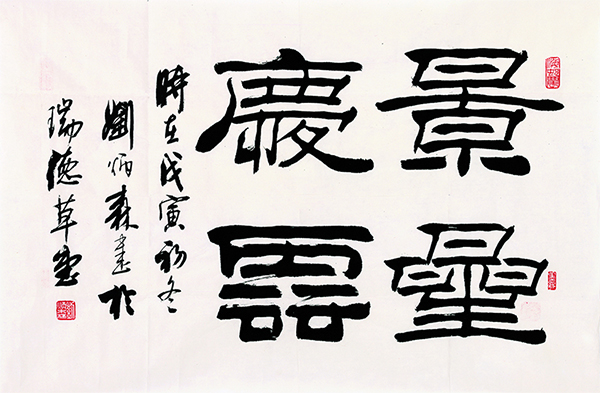 景曐
慶雲
時在戊寅初冬
劉炳森書於
瑞德草堂